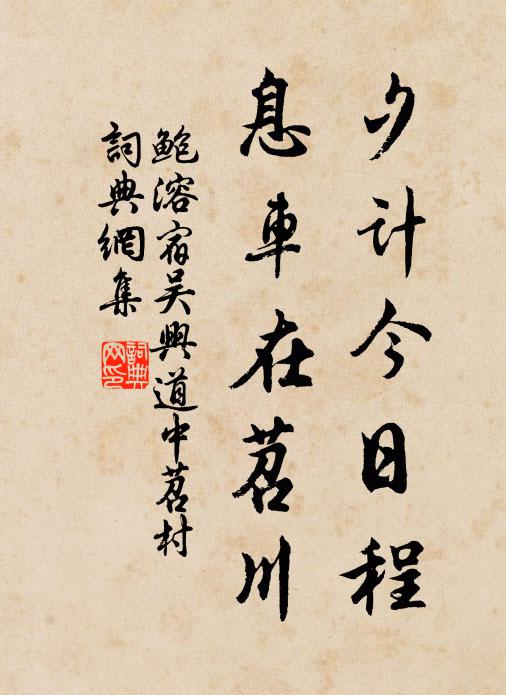 夕计今日程
息車在苕川
鲍溶宿吴興道中苕村
詞典網集
詞典网印